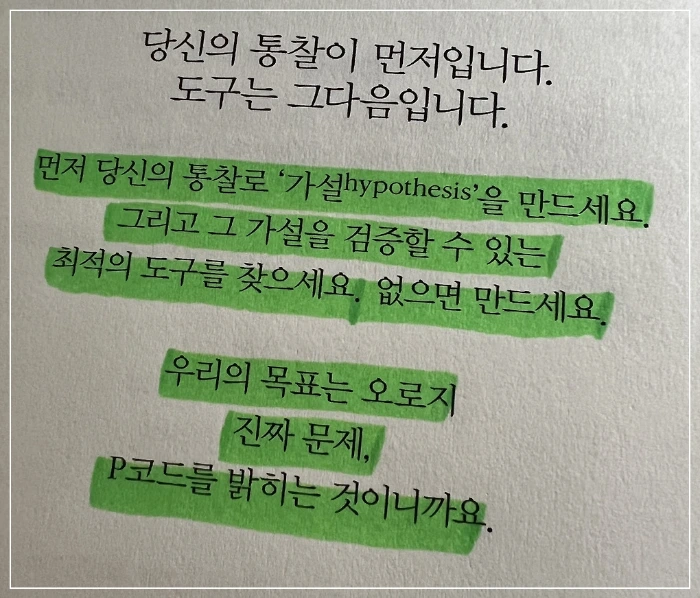 당신의 통찰이 먼저입니다.
도구는 그다음입니다.
먼저 당신의 통찰로 ‘가설hypothesis’을 만드세요.
그리고 그 가설을 검증할 수 있는
최적의 도구를 찾으세요. 없으면 만드세요.
우리의 목표는 오로지
진짜 문제,
P코드를 밝히는 것이니까요.